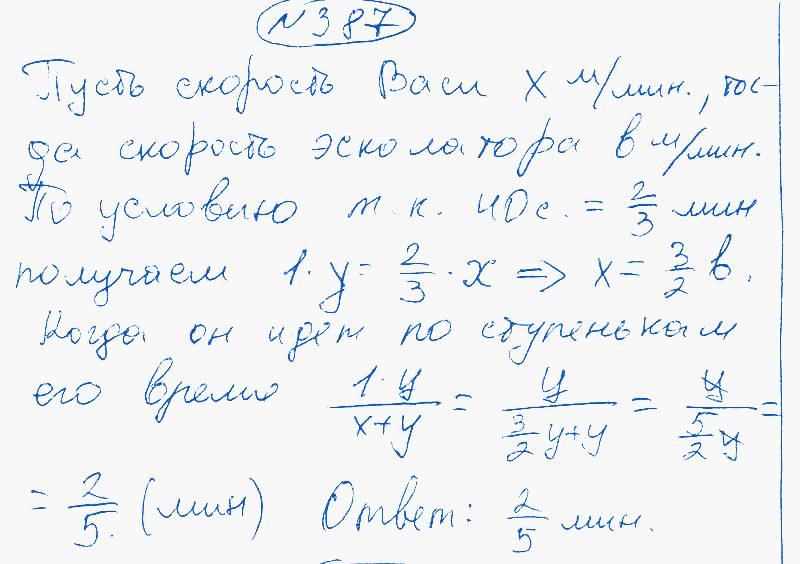 №387
Пусть скорость Васи x м/мин., тог-
да скорость эсколатора в м/мин.
По условию т.к. 40с. = 2/3 мин
получаем 1·y = 2/3 · x => x = 3/2 в.
Когда он идет по ступенькам
его время 1·y/(x+y) = y/(3/2 y+y) = y/(5/2 y) =
= 2/5. (мин) Ответ: 2/5 мин.